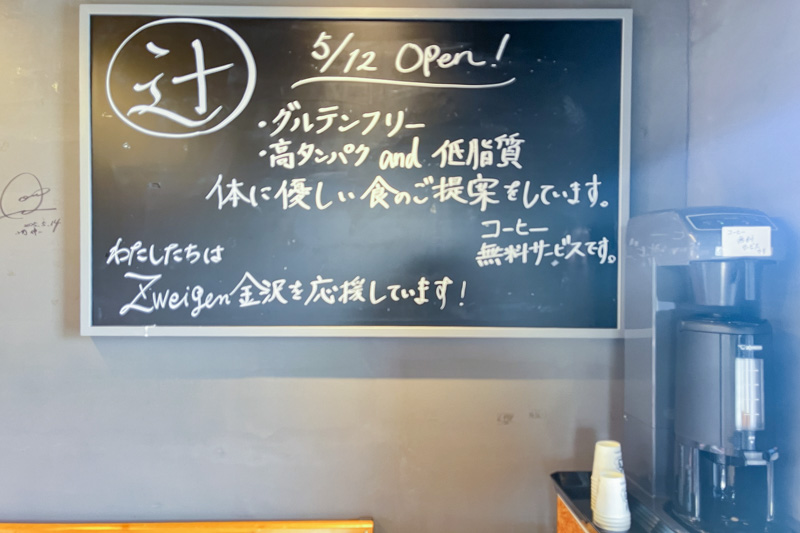 辻
5/12 Open!
・グルテンフリー
・高タンパク and 低脂質
体に優しい食のご提案をしています。
コーヒー
無料サービスです。
わたしたちは
Zweigen金沢を応援しています!
コーヒー
無料